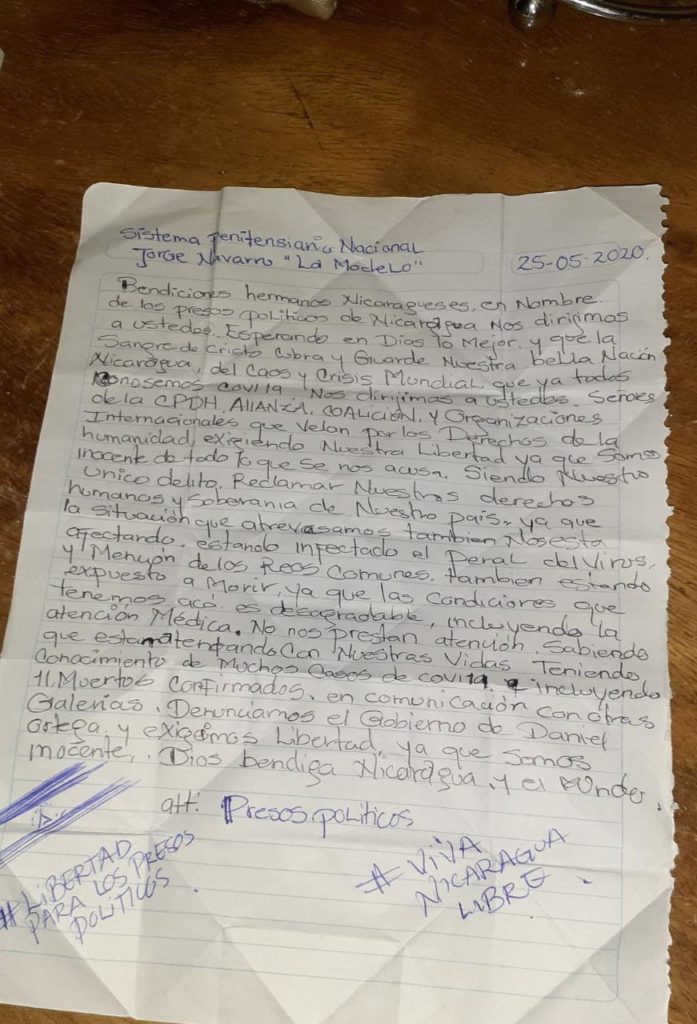 Sistema Penitensiario Nacional
Jorge Navarro "La Modelo"
25-05-2020.
Bendiciones hermanos Nicaragueses, en Nombre
de los presos politicos de Nicaragua Nos dirigimos
a ustedes. Esperando en Dios lo Mejor, y que la
Sangre de Cristo Cubra y Guarde Nuestra bella Nación
Nicaragua, del Caos y Crisis Mundial que ya todos
Conosemos Covi19. Nos dirijimas a ustedes. Señores
de la CPDH, AlIANZA, COALICIÓN, y Organizaciones
Internacionales que Velan por los Derechos de la
humanidad, exigiendo Nuestra Libertad ya que Somos
inocente de todo lo que se nos acusa. Siendo Nuestro
Unico delito. Reclamar Nuestros derechos
humanos y Soberania de Nuestro pais, ya que
la Situación que atrevesamos tambien Nos esta
afectando. estando infectado el Penal del Virus,
y Mención de los Reos Comunes. tambien estando
expuesto a Morir, ya que las Condiciones que
tenemos acá. es decagradable, incluyendo la
atención Médica. No nos prestan atención. Sabiendo
que estan atentando Con Nuestras Vidas Teniendo
Conocimiento de Muchos Casos de covi19. incluyendo
11. Muertos Confirmados, en comunicación con otras
Galerias. Denunciamos el Gobierno de Daniel
Ortega, y exigimos Libertad, ya que Somos
inocente,. Dios bendiga Nicaragua, y el Mundo.
att: Presos politicos
# LIBERTAD
PARA LOS PRESOS
POLITICOS
# VIVA
NICARAGUA
LIBRE